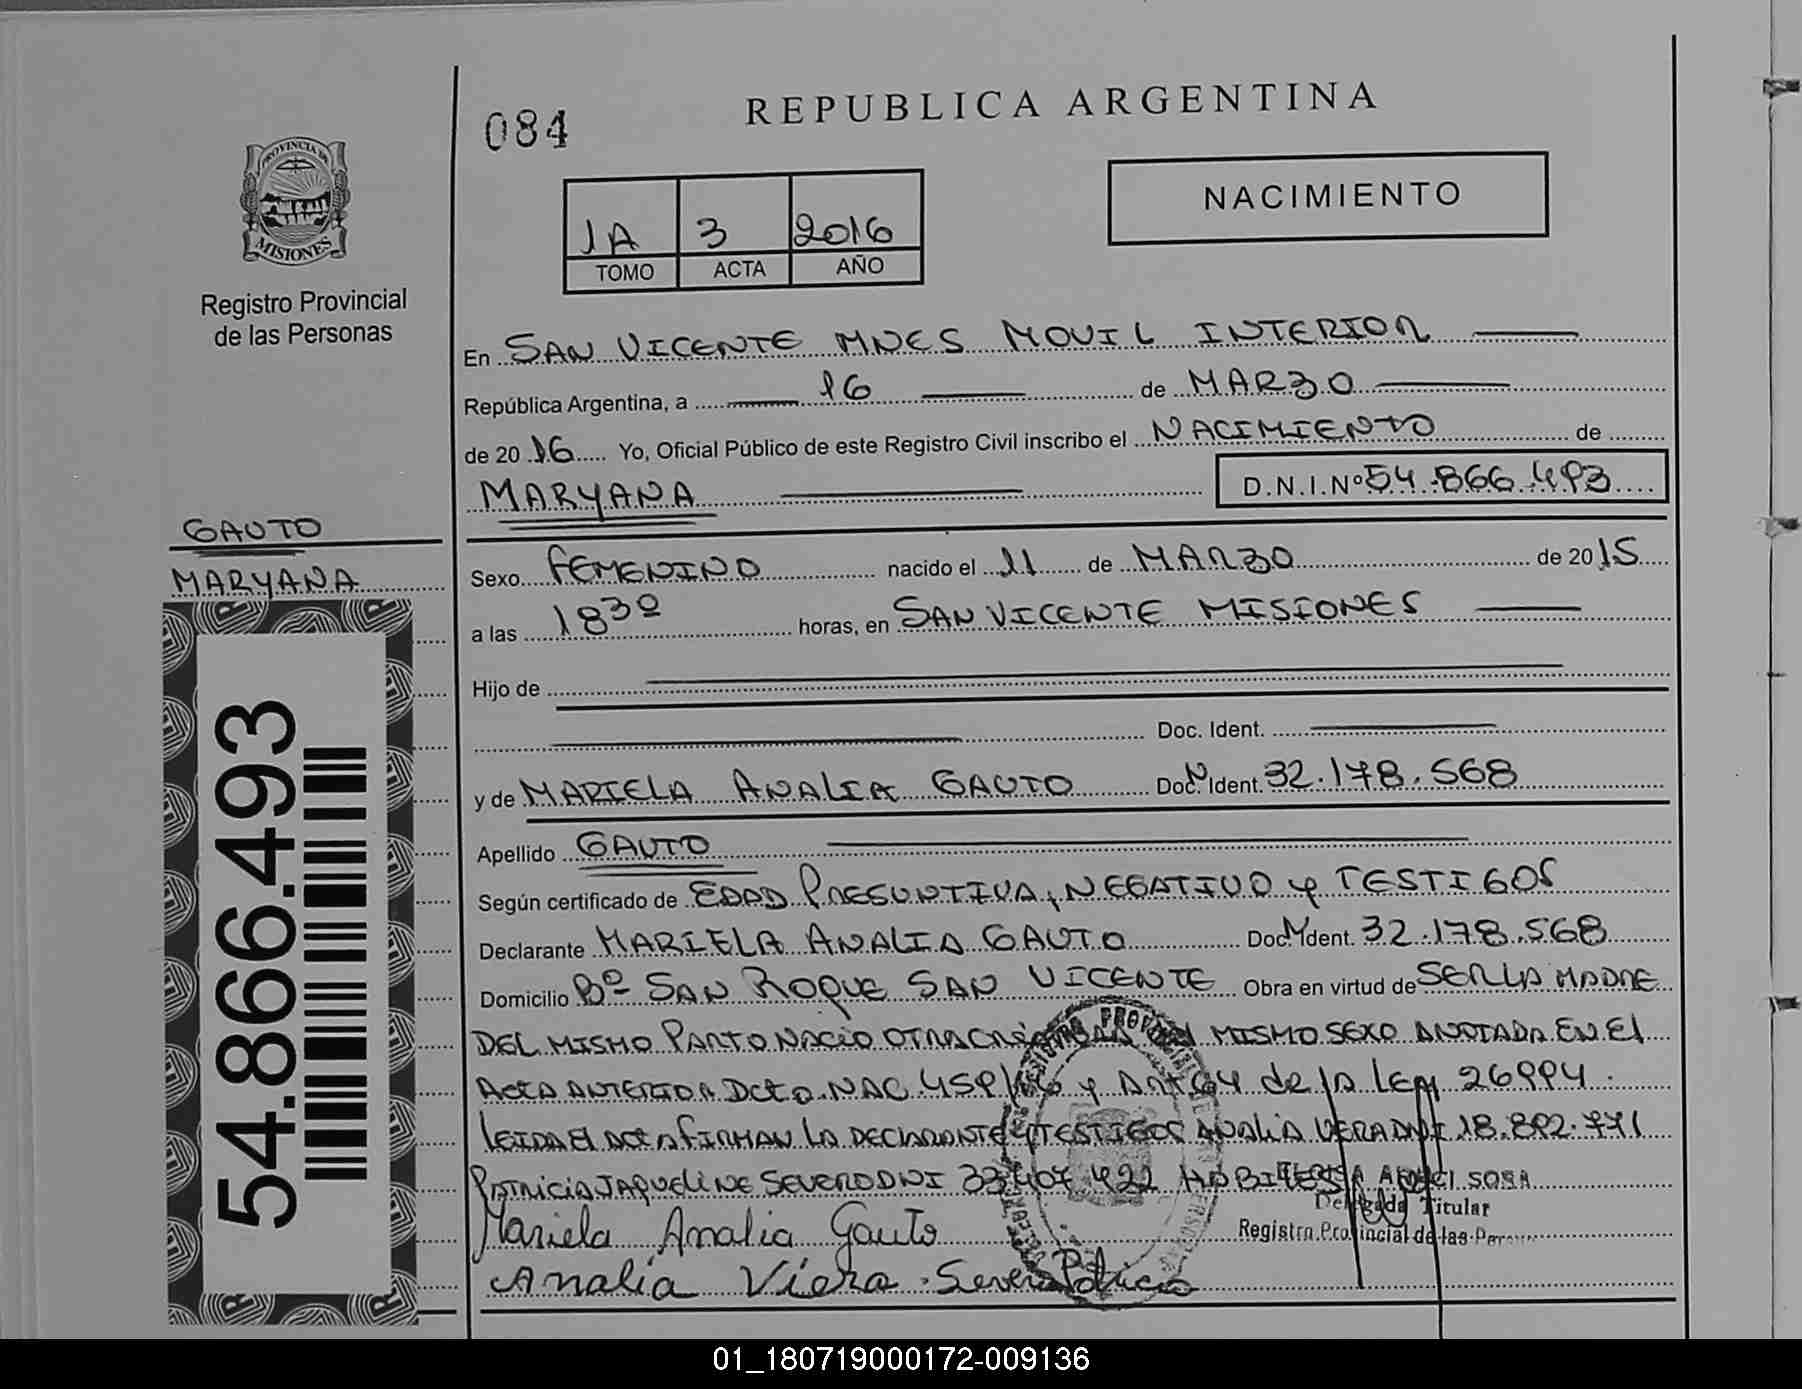 REPUBLICA ARGENTINA
084
PROVINCIA DE
MISIONES
Registro Provincial
de las Personas
1A 3 2016
TOMO ACTA AÑO
NACIMIENTO
En SAN VICENTE MNES MOVIL INTERIOR
República Argentina, a 16 de MARZO
de 2016 Yo, Oficial Público de este Registro Civil inscribo el NACIMIENTO de
MARYANA D.N.I.Nº 54.866.493
GAUTO
MARYANA
54.866.493
Sexo FEMENINO nacido el 11 de MARZO de 2015
a las 18 30 horas, en SAN VICENTE MISIONES
Hijo de
Doc. Ident.
y de MARIELA ANALIA GAUTO Doc. N Ident. 32.178.568
Apellido GAUTO
Según certificado de EDAD PRESUNTIVA, NEGATIVO y TESTIGOS
Declarante MARIELA ANALIA GAUTO Doc. N Ident. 32.178.568
Domicilio Bº SAN ROQUE SAN VICENTE Obra en virtud de SER LA MADRE
DEL MISMO PARTO NACIO OTRA MISMO SEXO ANOTADA EN EL
ACTA ANTERIOR DCTO. NAC. y ART 64 de la Ley 26994.
LEIDA EL ACTA FIRMAN LA DECLARANTE y TESTIGOS ANALIA VERA DNI 18.892.771
PATRICIA JAQUELINE SEVERO DNI 33407422
SOSA
Delegada Titular
Registro Provincial de las
Mariela Analia Gauto
Analia Viera Severo Patricia
01_180719000172-009136